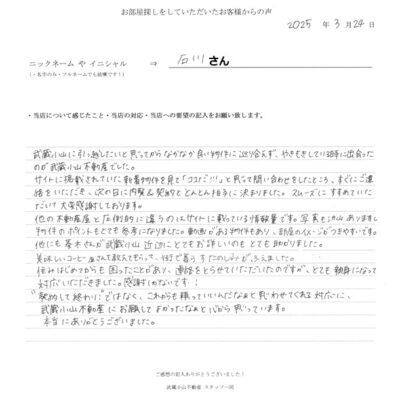 お部屋探しをしていただいたお客様からの声
2025 年 3 月 24 日
ニックネーム や イニシャル ⇒ 石川 さん
(・名字のみ・フルネームでも結構です!)
・当店について感じたこと・当店の対応・当店への要望の記入をお願い致します。
武蔵小山に引っ越したいと思ってからなかなか良い物件に巡り会えず、やきもきしている時に出会った
のが武蔵小山不動産でした。
サイトに掲載されていた新着物件を見て「ココだ!!!」と思って問い合わせをしたところ、すぐにご連
絡をいただき、次の日に内見&契約ととんとん拍子に決まりました。スムーズにすすめていた
だいて大変感謝しております。
他の不動産屋と圧倒的に違うのはサイトに載っている情報量です。写真も沢山ありますし
物件のポイントもとても参考になりました。動画がある物件もあり、部屋のイメージがつきやすいです。
他にも 基木さんが武蔵小山近辺にとてもお詳しいのもとても助かりました。
美味しいコーヒー屋さん教えてもらって、街で暮らすたのしみがふえました。
住みはじめてからも困ったことがあり、連絡をとらせていただいたのですが、とても親身になって
対応いただきました。感謝しかないです!
"契約して終わり"ではなく、これからも頼っていいんだなぁと思わせてくれる対応に、
武蔵小山不動産にお願いしてよかったなぁと心から思っています。
本当にありがとうございました。
ご感想の記入ありがとうございました!
武蔵小山不動産 スタッフ一同